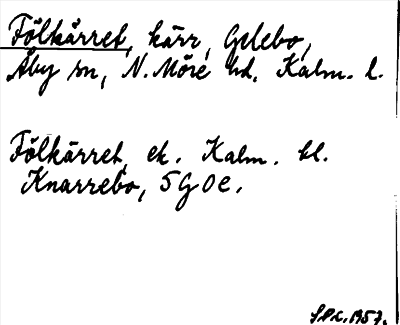 Fölkärret, kärr, Gelebo,
Åby sn, N. Möre hd, Kalm. l.
Fölkärret, ek. Kalm. bl.
Knarrebo, 5 G 0 e.
1957.